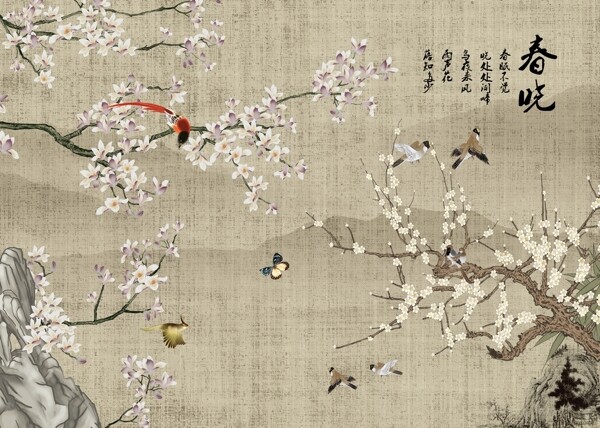 春晓
春眠不觉
晓处处闻啼
鸟夜来风
雨声花
落知多少